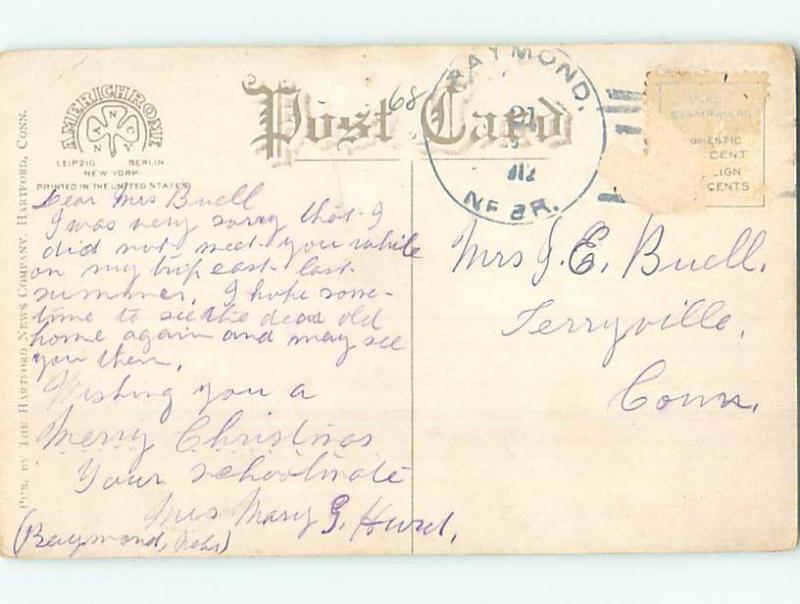 AMERICHROME
ANNCY
LEIPZIG BERLIN
NEW YORK
PRINTED IN THE UNITED STATES
Post Card
68
RAYMOND,
21
1912
NEBR.
STAMP HERE
DOMESTIC
CENT
CENTS
PUB. BY THE HARTFORD NEWS COMPANY, HARTFORD, CONN.
Dear Mrs Buell
I was very sorry that I
did not meet you while
on my trip east last
summer. I hope some-
time to see the dear old
home again and may see
you then.
Wishing you a
Merry Christmas
Your schoolmate
Mrs Mary G. Hurd.
(Raymond, Nebr)
Mrs J. E. Buell.
Terryville,
Conn.